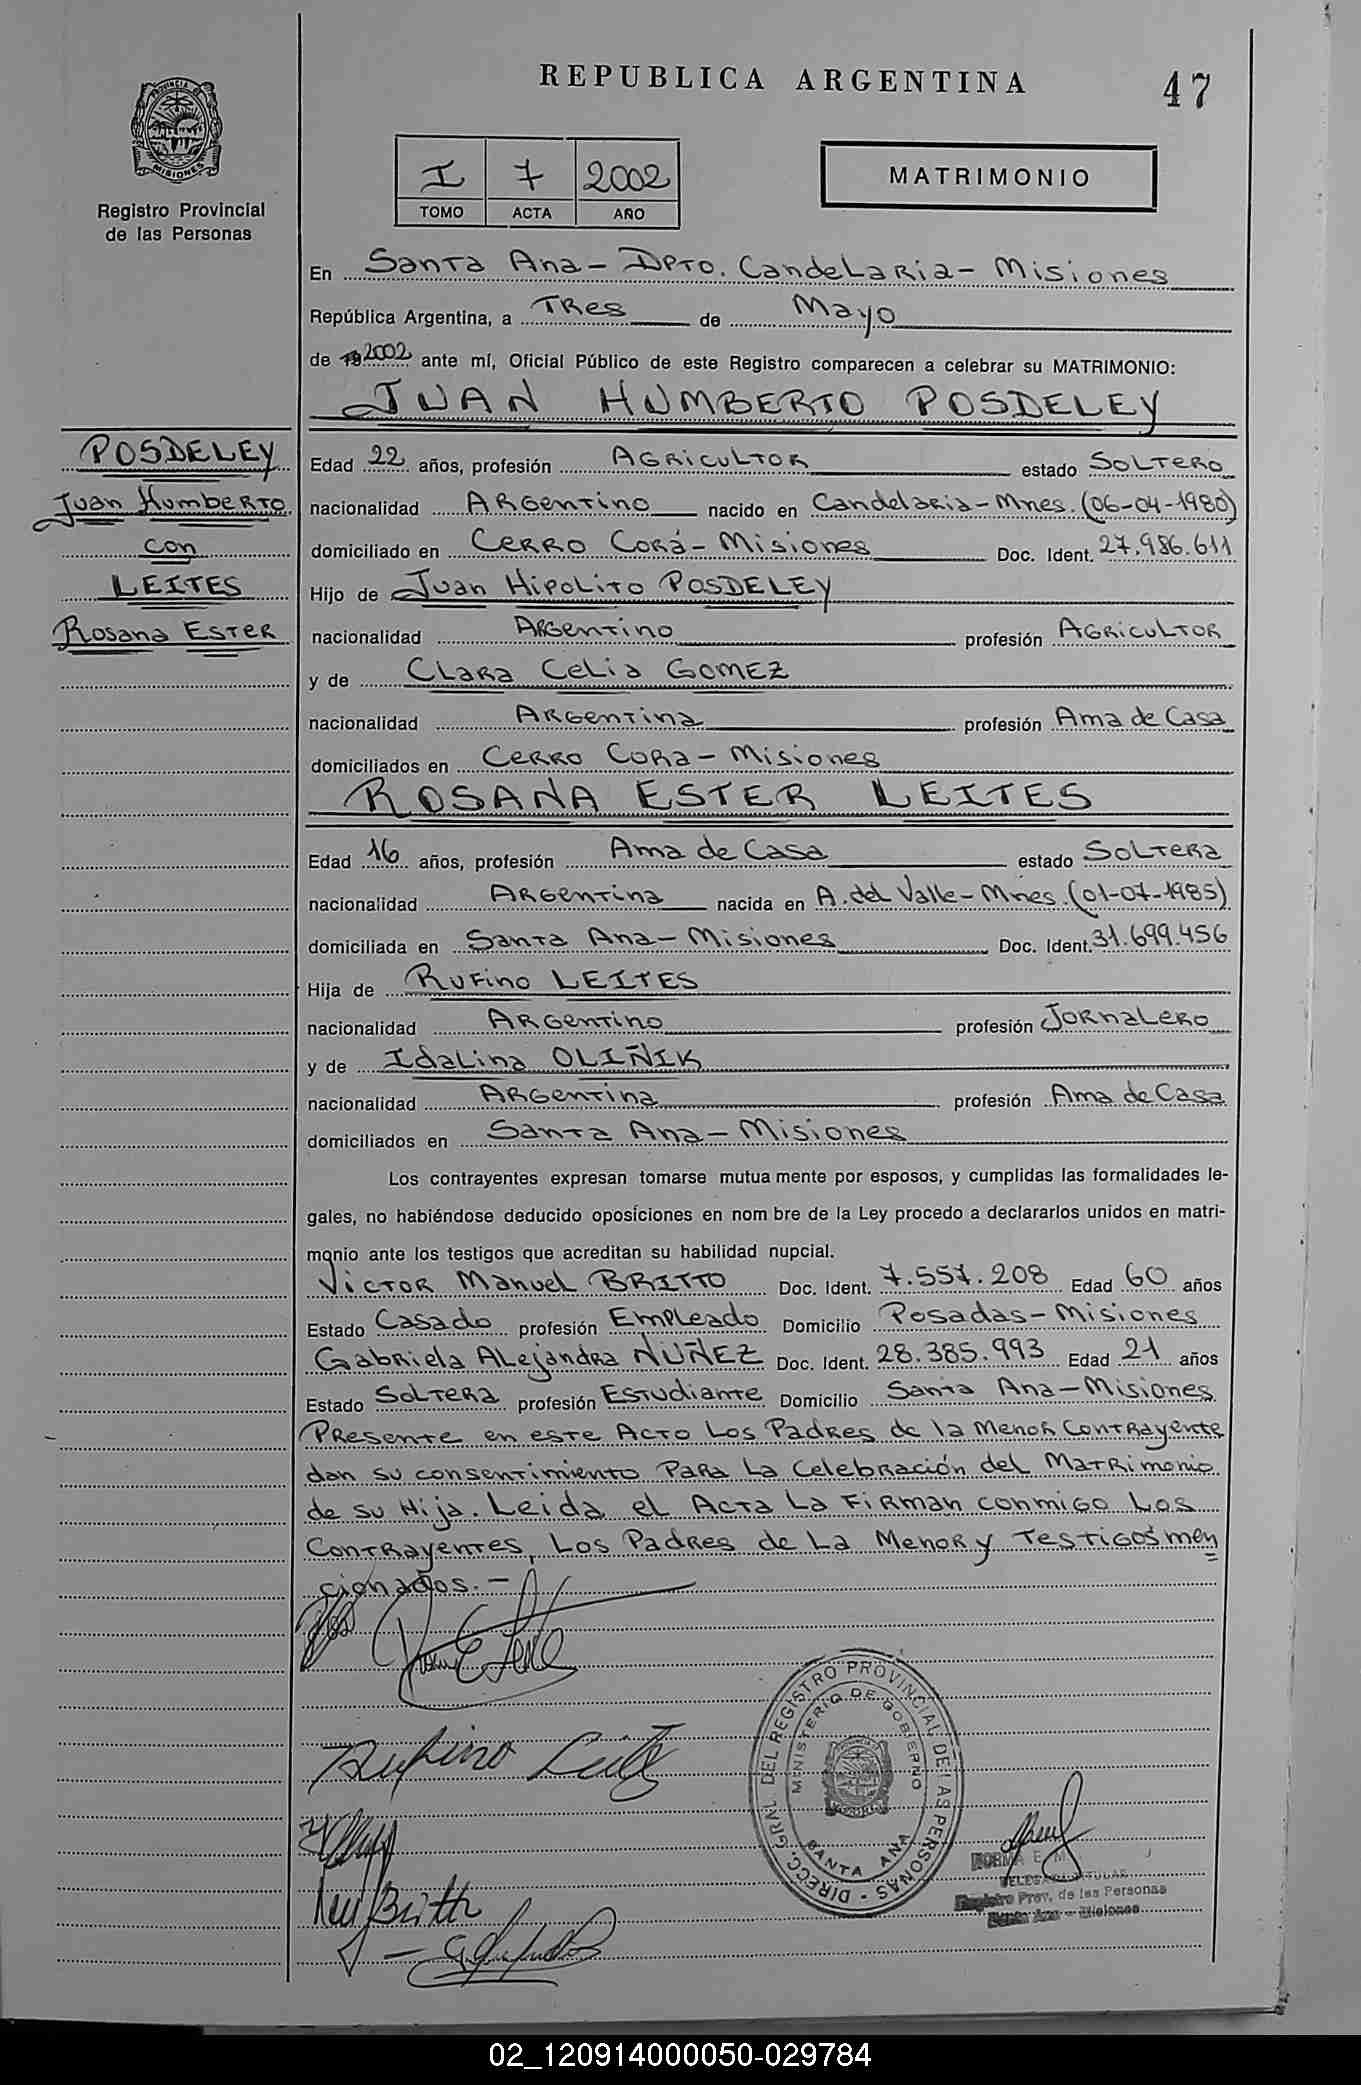 REPUBLICA ARGENTINA
47
PROVINCIA DE
MISIONES
Registro Provincial
de las Personas
I 7 2002
TOMO ACTA AÑO
MATRIMONIO
En Santa Ana - Dpto. Candelaria - Misiones
República Argentina, a Tres de Mayo
de 19 2002 ante mí, Oficial Público de este Registro comparecen a celebrar su MATRIMONIO:
JUAN HUMBERTO POSDELEY
POSDELEY
Juan Humberto
con
LEITES
Rosana Ester
Edad 22 años, profesión Agricultor estado Soltero
nacionalidad Argentino nacido en Candelaria - Mnes. (06-04-1980)
domiciliado en Cerro Corá - Misiones Doc. Ident. 27.986.611
Hijo de Juan Hipolito POSDELEY
nacionalidad Argentino profesión Agricultor
y de Clara Celia GOMEZ
nacionalidad Argentina profesión Ama de Casa
domiciliados en Cerro Cora - Misiones
ROSANA ESTER LEITES
Edad 16 años, profesión Ama de Casa estado Soltera
nacionalidad Argentina nacida en A. del Valle - Mnes. (01-07-1985)
domiciliada en Santa Ana - Misiones Doc. Ident. 31.699.456
Hija de Rufino LEITES
nacionalidad Argentino profesión Jornalero
y de Idalina OLIÑIK
nacionalidad Argentina profesión Ama de Casa
domiciliados en Santa Ana - Misiones
Los contrayentes expresan tomarse mutua mente por esposos, y cumplidas las formalidades le-
gales, no habiéndose deducido oposiciones en nom bre de la Ley procedo a declararlos unidos en matri-
monio ante los testigos que acreditan su habilidad nupcial.
Victor Manuel BRITTO Doc. Ident. 7.557.208 Edad 60 años
Estado Casado profesión Empleado Domicilio Posadas - Misiones
Gabriela Alejandra NUÑEZ Doc. Ident. 28.385.993 Edad 21 años
Estado Soltera profesión Estudiante Domicilio Santa Ana - Misiones
Presente en este Acto los Padres de la menor contrayente
dan su consentimiento para la celebración del Matrimonio
de su Hija. Leida el Acta la firman conmigo los
contrayentes, los Padres de la Menor y Testigos men
cionados. -
Rufino Leites
DIRECC. GRAL. DEL REGISTRO PROVINCIAL DE LAS PERSONAS -
MINISTERIO DE GOBIERNO
SANTA ANA
NORMA E. M
DELEGADA TITULAR
Registro Prov. de las Personas
Santa Ana - Misiones
02_120914000050-029784